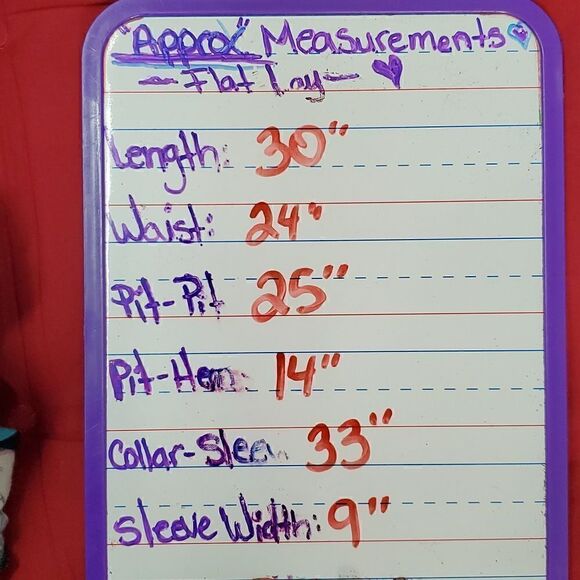 "Approx" Measurements
- Flat Lay -
Length: 30"
Waist: 24"
Pit-Pit 25"
Pit-Hem 14"
Collar-Slee 33"
Sleeve Width: 9"